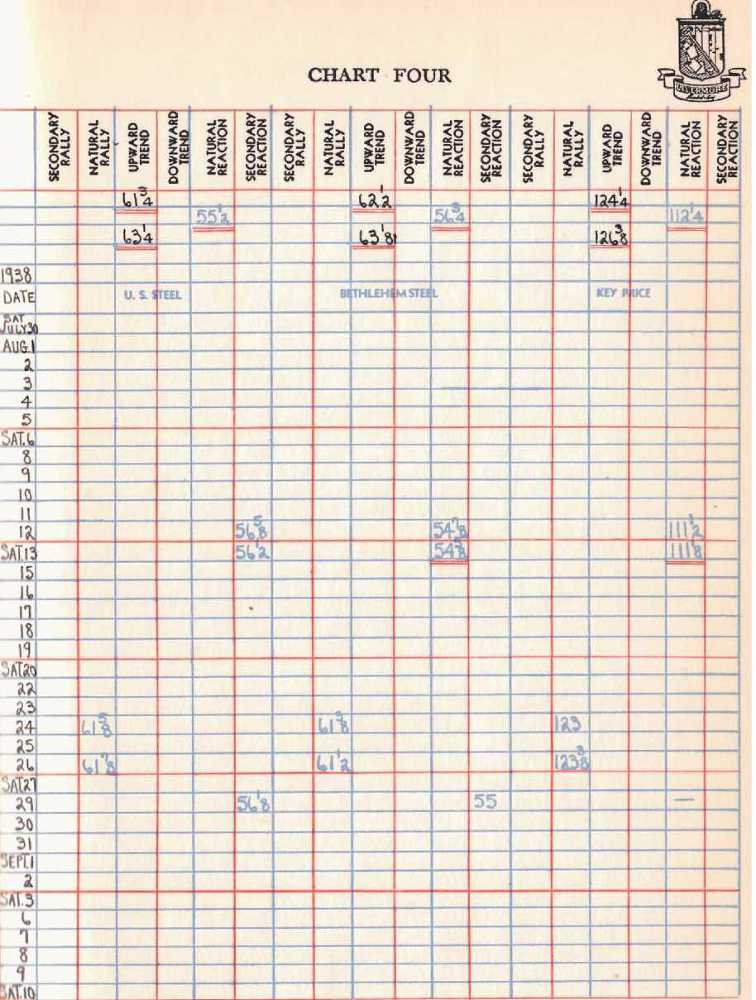 LIVERMORE
CHART FOUR
SECONDARY RALLY NATURAL RALLY UPWARD TREND DOWNWARD TREND NATURAL REACTION SECONDARY REACTION SECONDARY RALLY NATURAL RALLY UPWARD TREND DOWNWARD TREND NATURAL REACTION SECONDARY REACTION SECONDARY RALLY NATURAL RALLY UPWARD TREND DOWNWARD TREND NATURAL REACTION SECONDARY REACTION
61 3/4 62 1/2 124 1/4
55 1/2 56 3/4 112 1/4
63 1/4 63 1/8 126 3/8
1938
DATE U. S. STEEL BETHLEHEM STEEL KEY PRICE
SAT
JULY 30
AUG. 1
2
3
4
5
SAT. 6
8
9
10
11
12 56 5/8 54 7/8 111 1/2
SAT. 13 56 1/2 54 5/8 111 1/8
15
16
17
18
19
SAT 20
22
23
24 61 5/8 61 3/8 123
25
26 61 7/8 61 1/2 123 3/8
SAT 27
29 56 1/8 55 —
30
31
SEPT. 1
2
SAT. 3
6
7
8
9
SAT. 10